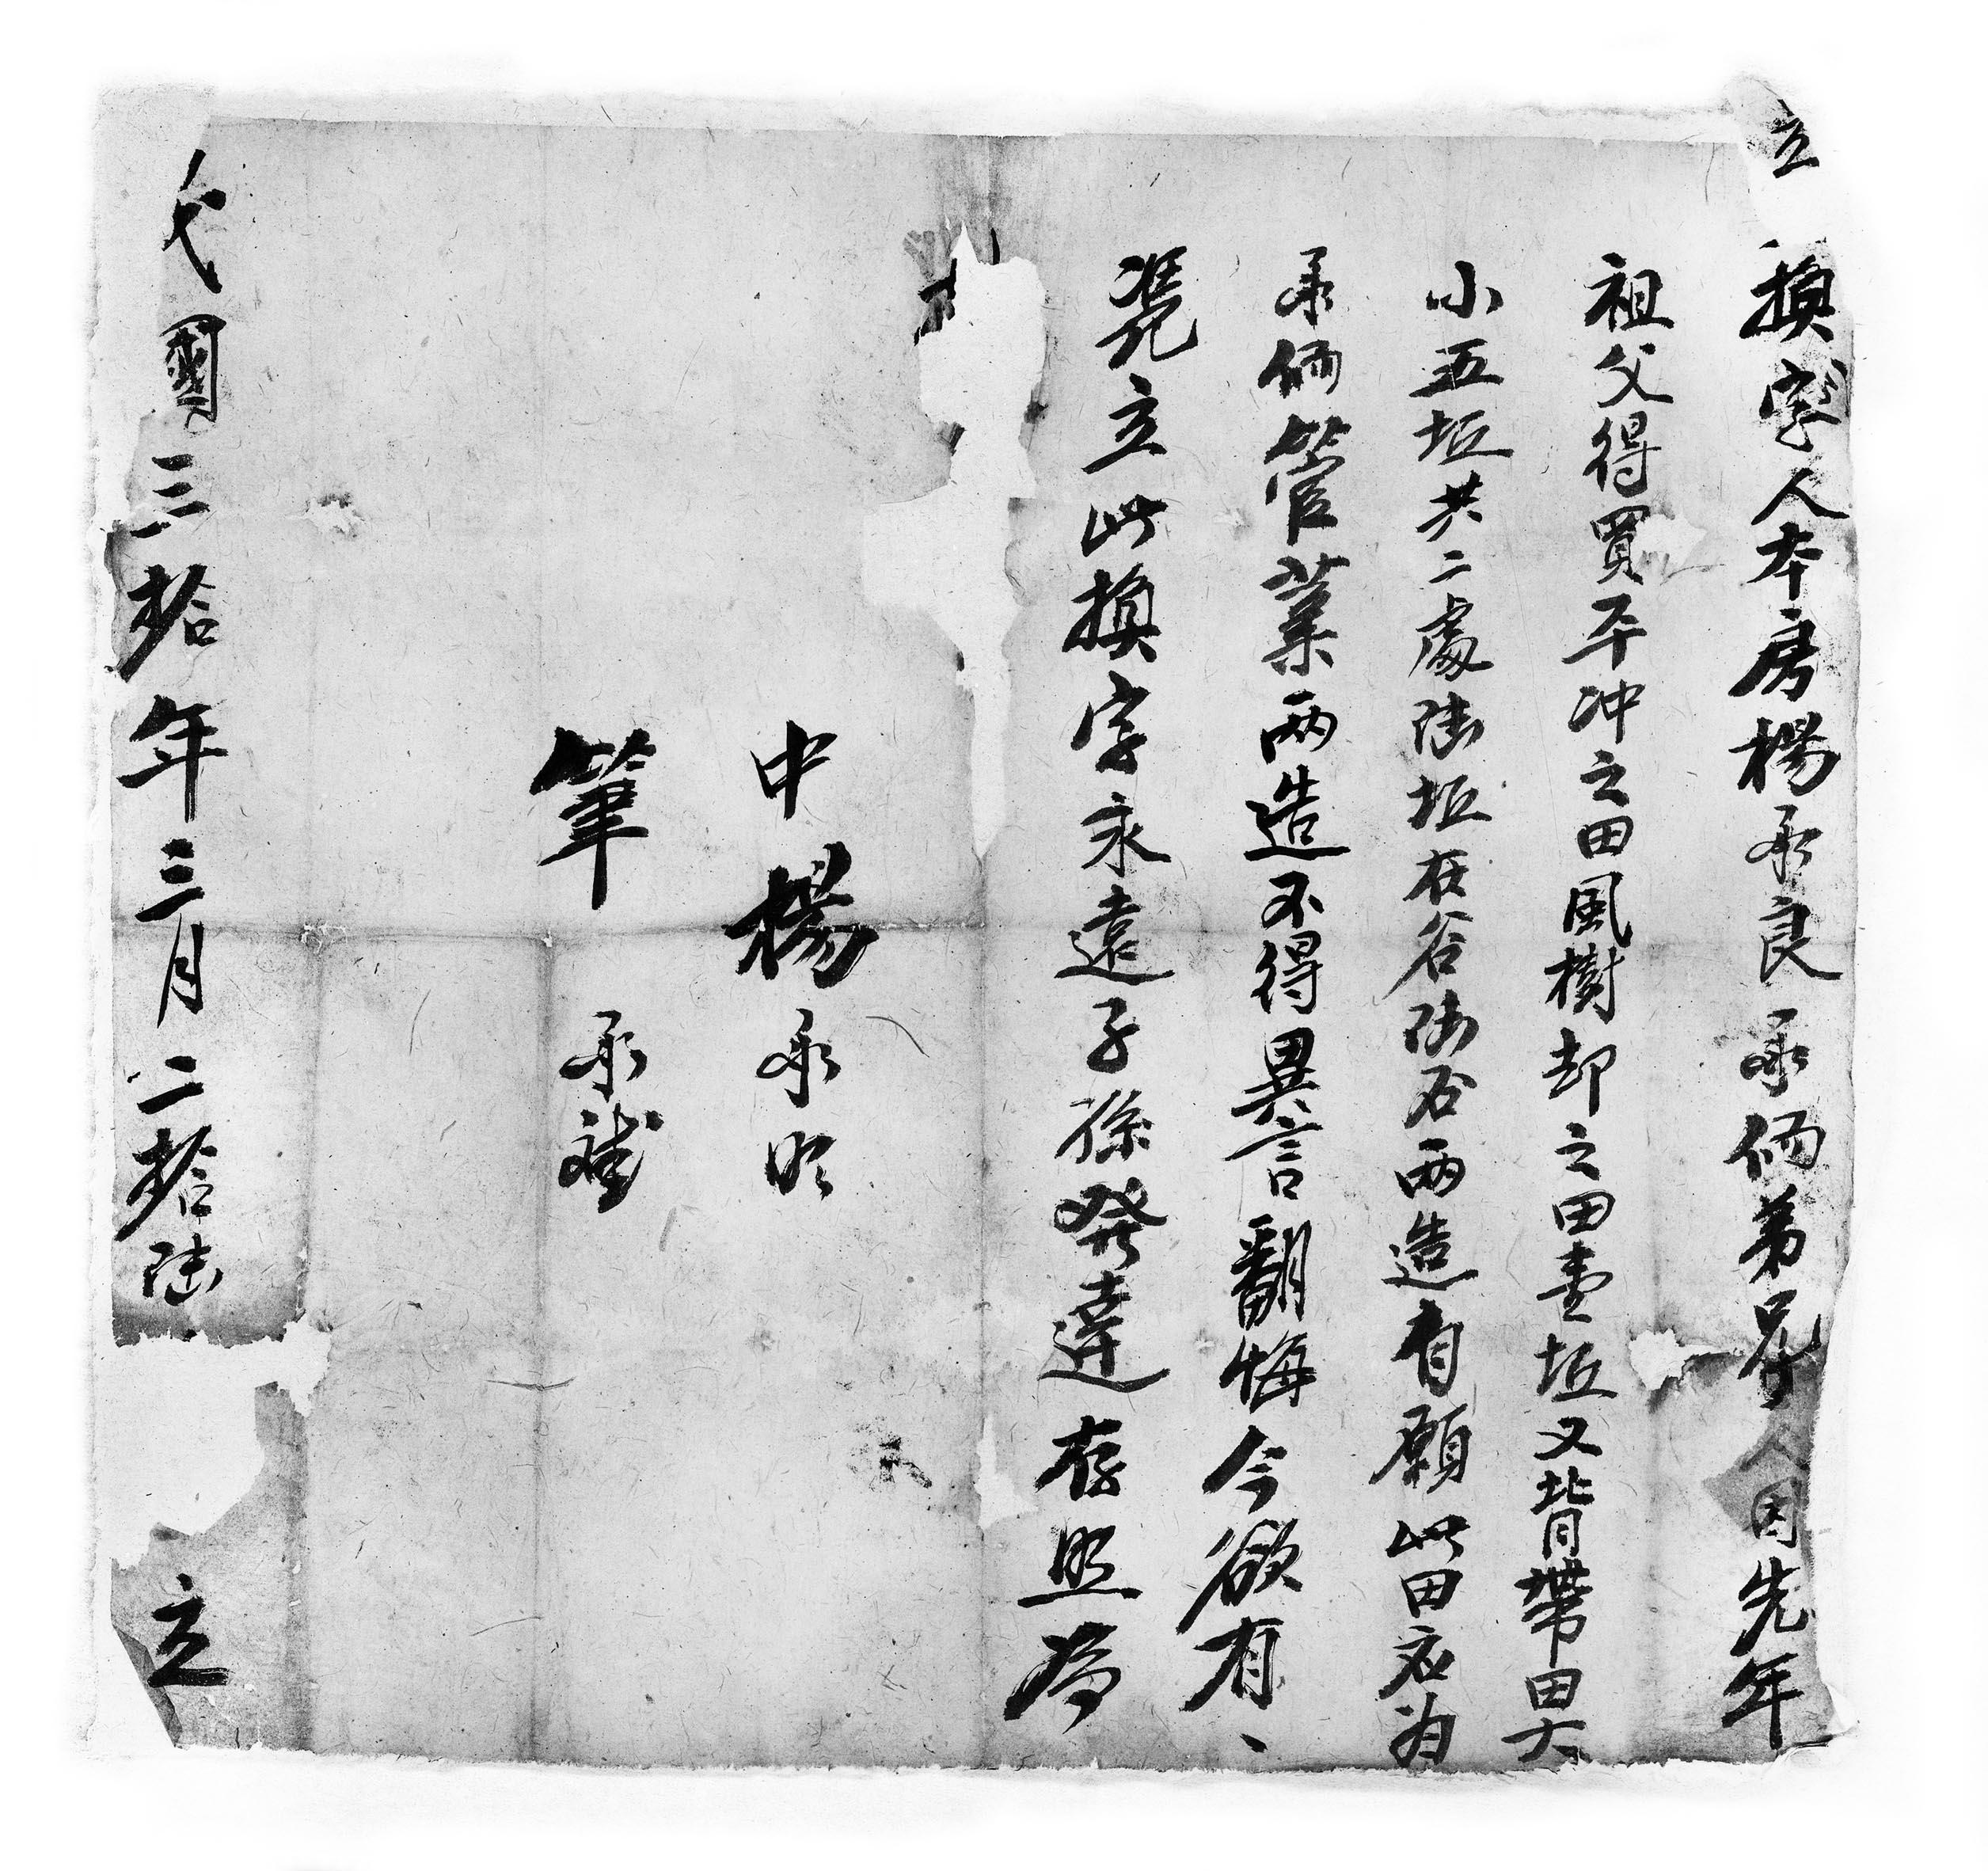 立換字人本房楊承良承俩弟兄人因先年
祖父得買平冲之田風樹却之田壹坵又背帶田大
小五坵共二處陆坵在谷陆石两造有願此田応为
承俩管業两造不得異言翻悔今欲有、
凭立此換字永遠子孫発達存照為
中楊承明
筆承斌
民國三拾年三月二拾陆立